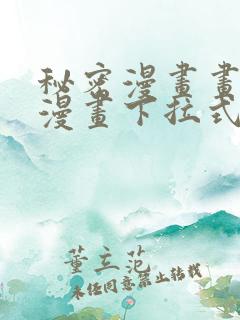 秘密漫畫畫
漫畫下拉式
董立范
未经同意禁止转载